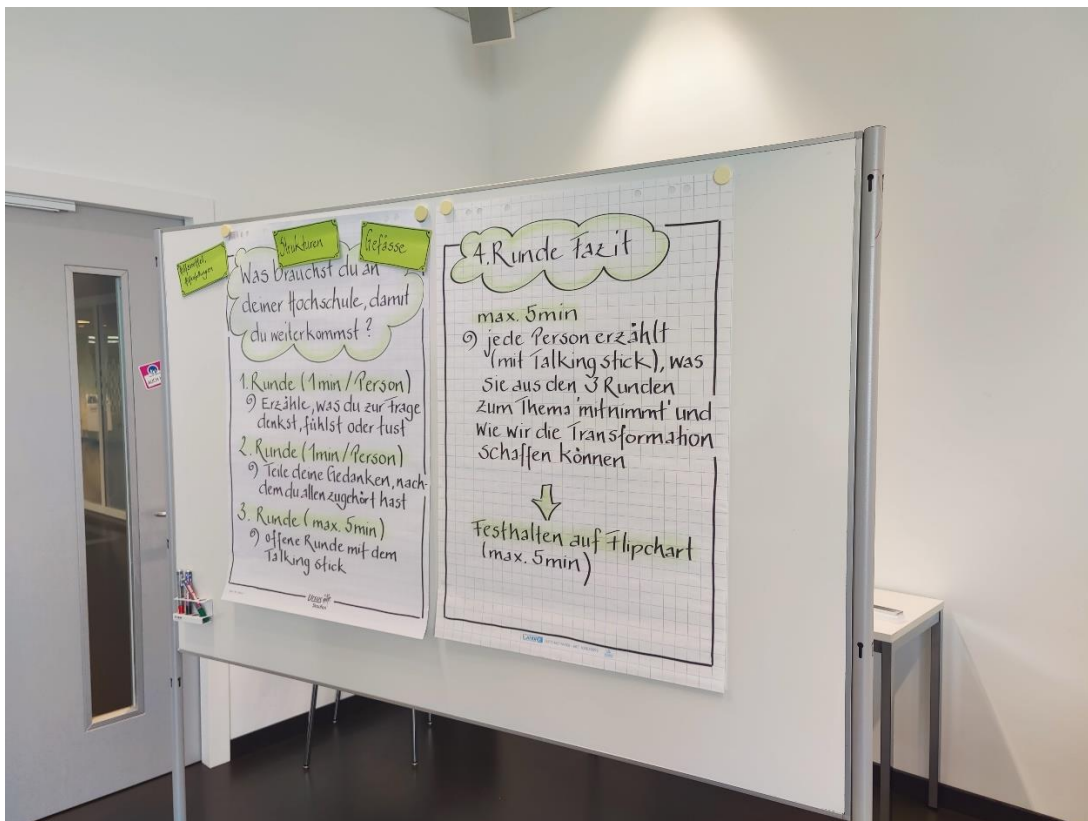 Strukturen
Gefässe
Was brauchst du an
deiner Hochschule, damit
du weiterkommst?
1. Runde (1min/Person)
Erzähle, was du zur Frage
denkst, fühlst oder tust
2. Runde (1min/Person)
Teile deine Gedanken, nach-
dem du allen zugehört hast
3. Runde (max. 5min)
offene Runde mit dem
Talking stick
4. Runde Fazit
max. 5min
jede Person erzählt
(mit Talking stick), was
Sie aus den 3 Runden
zum Thema 'mitnimmt' und
wie wir die Transformation
schaffen können
Festhalten auf Flipchart
(max. 5min)